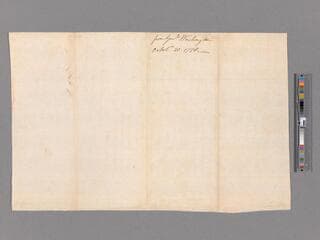 from Genl. Washington
Octobr. 20. 178